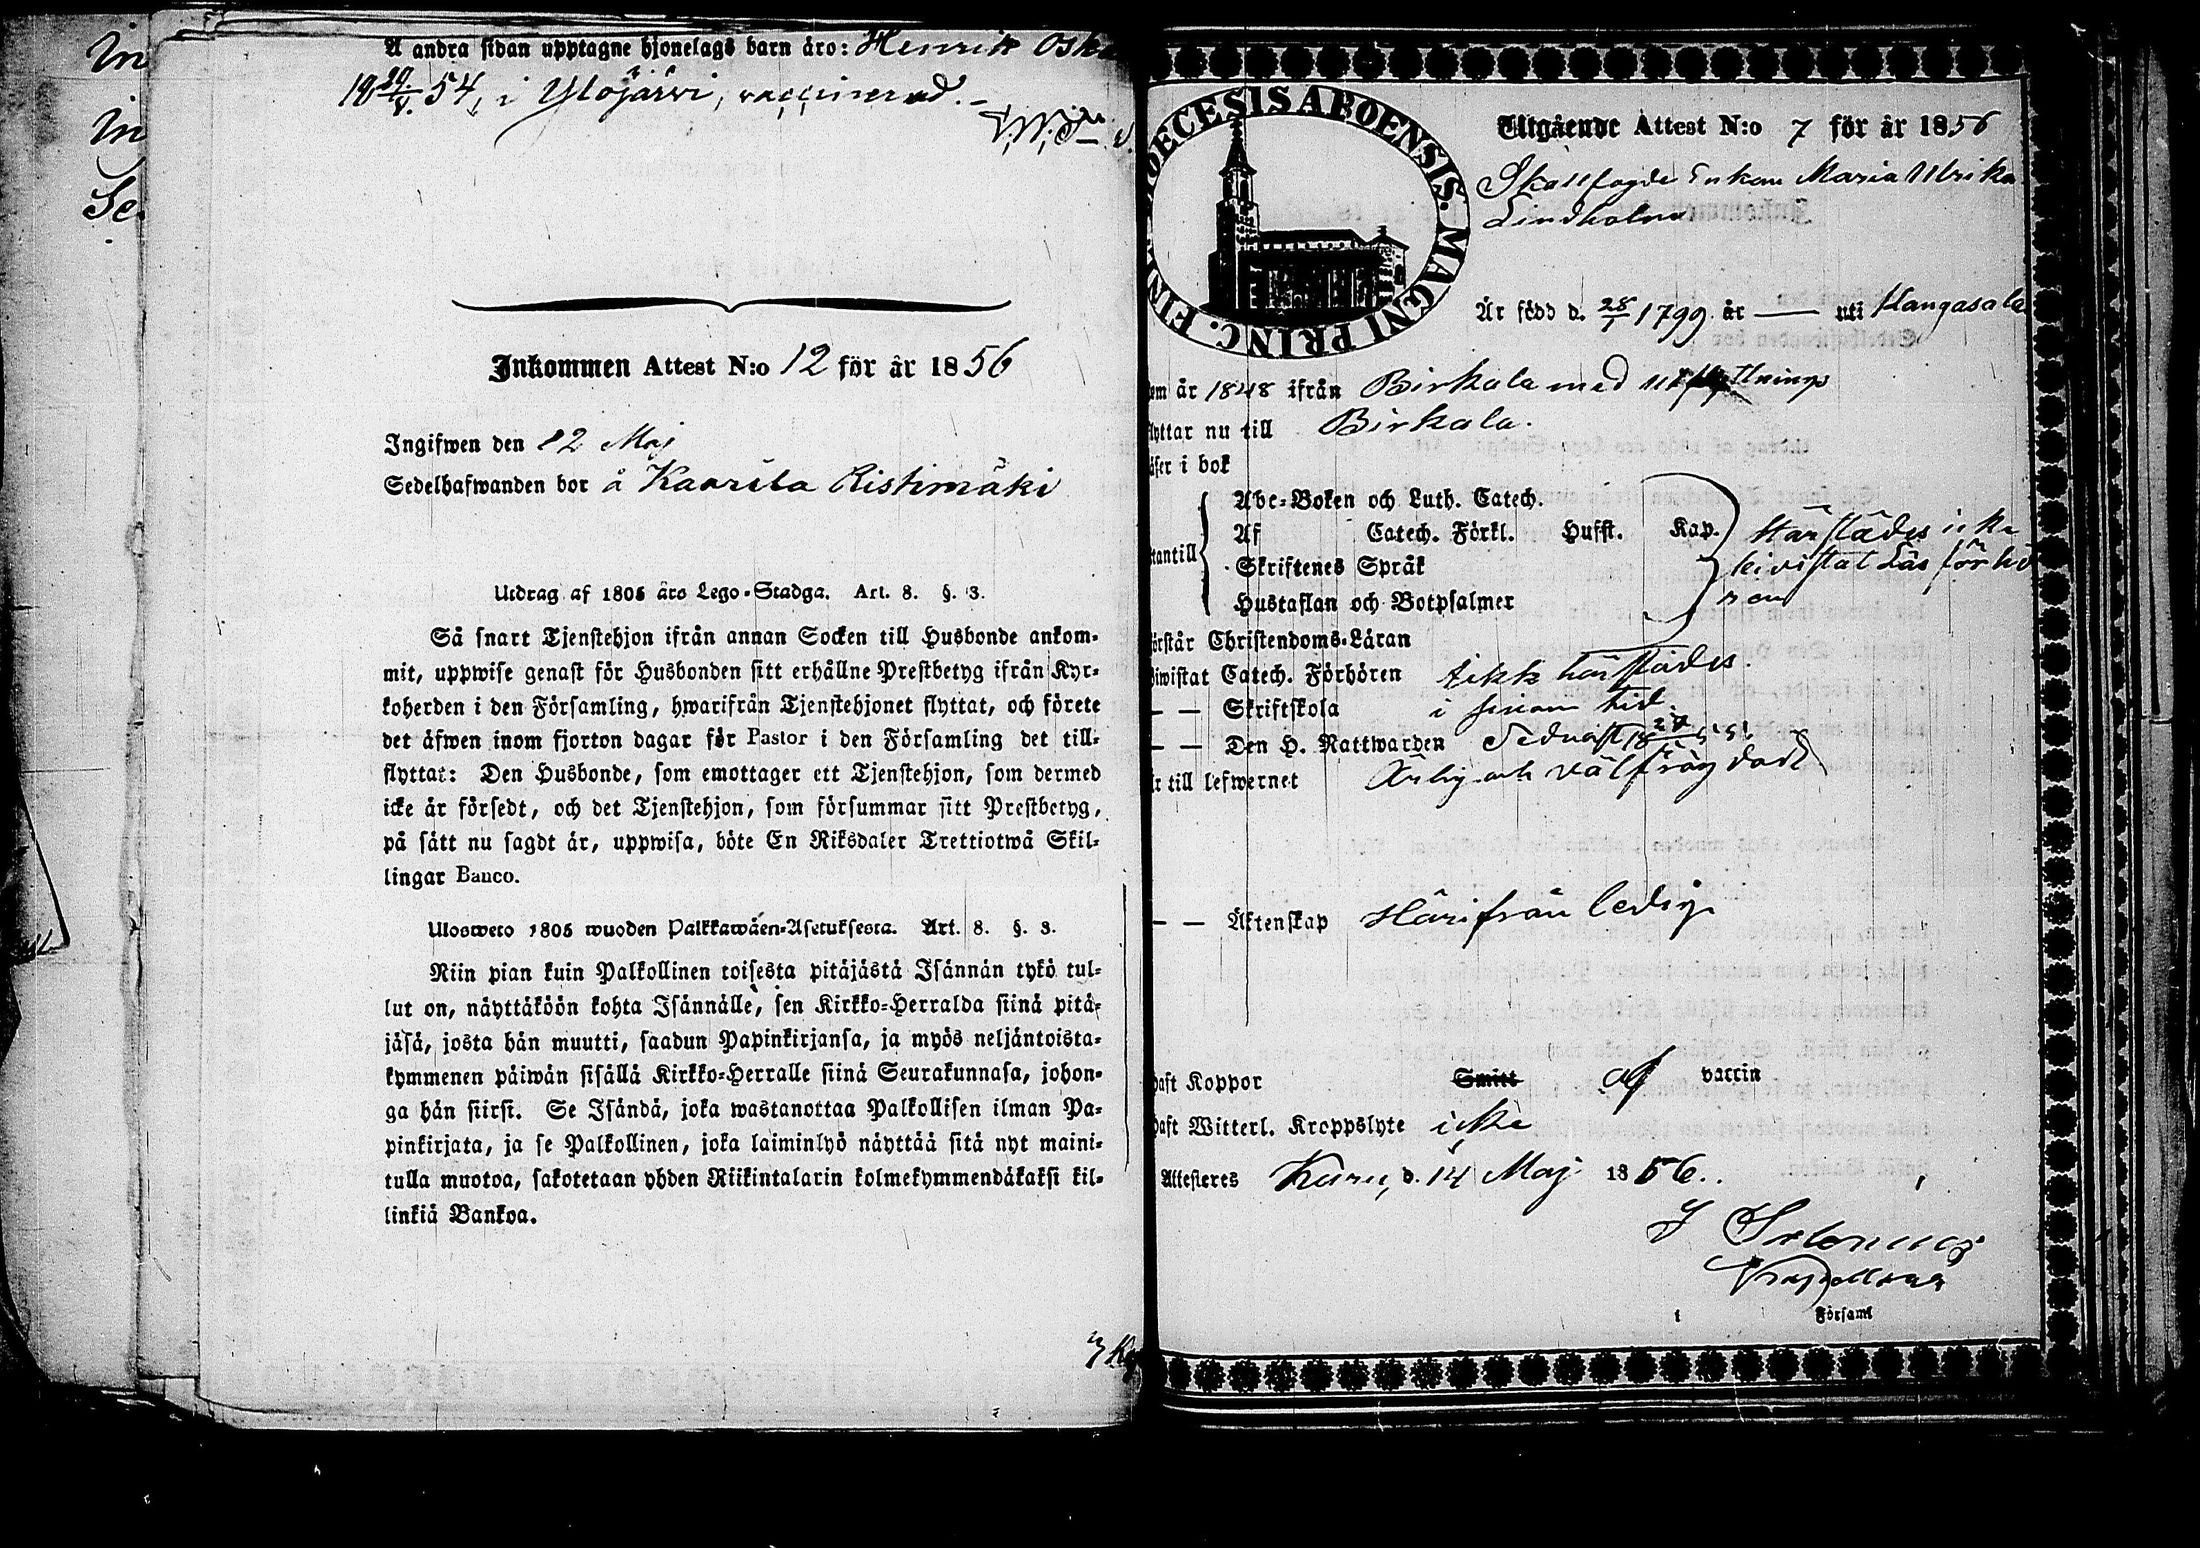 In
In
Se
A andra sidan upptagne hjonelags barn äro: Henrik Oska
18 29/8. 54, i Ylöjärvi, vaccinerad.
Inkommen Attest N:o 12 för år 1856
Ingifwen den 22 Maj
Sedelhafwanden bor å Kaarila Ristimäki
Utdrag af 1805 års Lego-Stadga. Art. 8. §. 3.
Så snart Tjenstehjon ifrån annan Socken till Husbonde ankom-
mit, uppwise genast för Husbonden sitt erhållne Prestbetyg ifrån Kyr-
koherden i den Församling, hwarifrån Tjenstehjonet flyttat, och förete
det äfwen inom fjorton dagar för Pastor i den Församling det till-
flyttat: Den Husbonde, som emottager ett Tjenstehjon, som dermed
icke är försedt, och det Tjenstehjon, som försummar sitt Prestbetyg,
på sätt nu sagdt är, uppwisa, böte En Riksdaler Trettiotwå Skil-
lingar Banco.
Uloswето 1805 wuoden Palkkawäen-Asetuksesta. Art. 8. §. 3.
Niin pian kuin Palkollinen toisesta pitäjästä Isännän tykö tul-
lut on, näyttäköön kohta Isännälle, sen Kirkko-Herralda siinä pitä-
jäsä, josta hän muutti, saadun Papinkirjansa, ja myös neljäntoista-
kymmenen päiwän sisällä Kirkko-Herralle siinä Seurakunnasa, johon-
ga hän siirsi. Se Isändä, joka wastanottaa Palkollisen ilman Pa-
pinkirjata, ja se Palkollinen, joka laiminlyö näyttää sitä nyt maini-
tulla muotoa, sakotetaan yhden Riikintalarin kolmekymmendäkaksi kil-
linkiä Bankoa.
DIOECESIS ABOENSIS. MAGNI PRINC. FIN
Utgående Attest N:o 7 för år 1856
Skallfogde Enkan Maria Ulrika
Lindholm
Är född d. 28/1 1799 år — uti Kangasala
om år 1848 ifrån Birkala med utflyttnings
lyttar nu till Birkala.
äser i bok
Abc-Boken och Luth. Catech.
Af Catech. Förkl. Husst. Kap. Härstädes icke
utantill Skriftenes Språk bivistat Läsförhö
Hustaflan och Botpsalmer ren
örstår Christendoms-Läran
Biwistat Catech. Förhören Likk härstädes.
— — Skriftskola i sinom tid.
— — Den H. Nattwarden Sednast 18
r till lefwernet Ärlig och välfrägdad
— — Äktenskap Härifrån ledig
haft Koppor Smitt af vaccin
haft Witterl. Kroppslyte icke
Attesteres Kuru, d. 14 Maj 1856.
Kapellan
i Församl